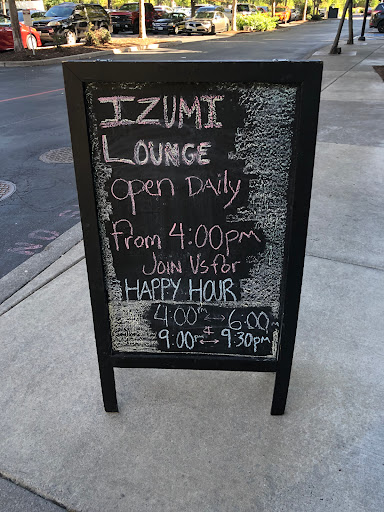 IZUMI
LOUNGE
open Daily
from 4:00pm
Join Us for
HAPPY HOUR
4:00pm ↔ 6:00pm
&
9:00pm ↔ 9:30pm
NO